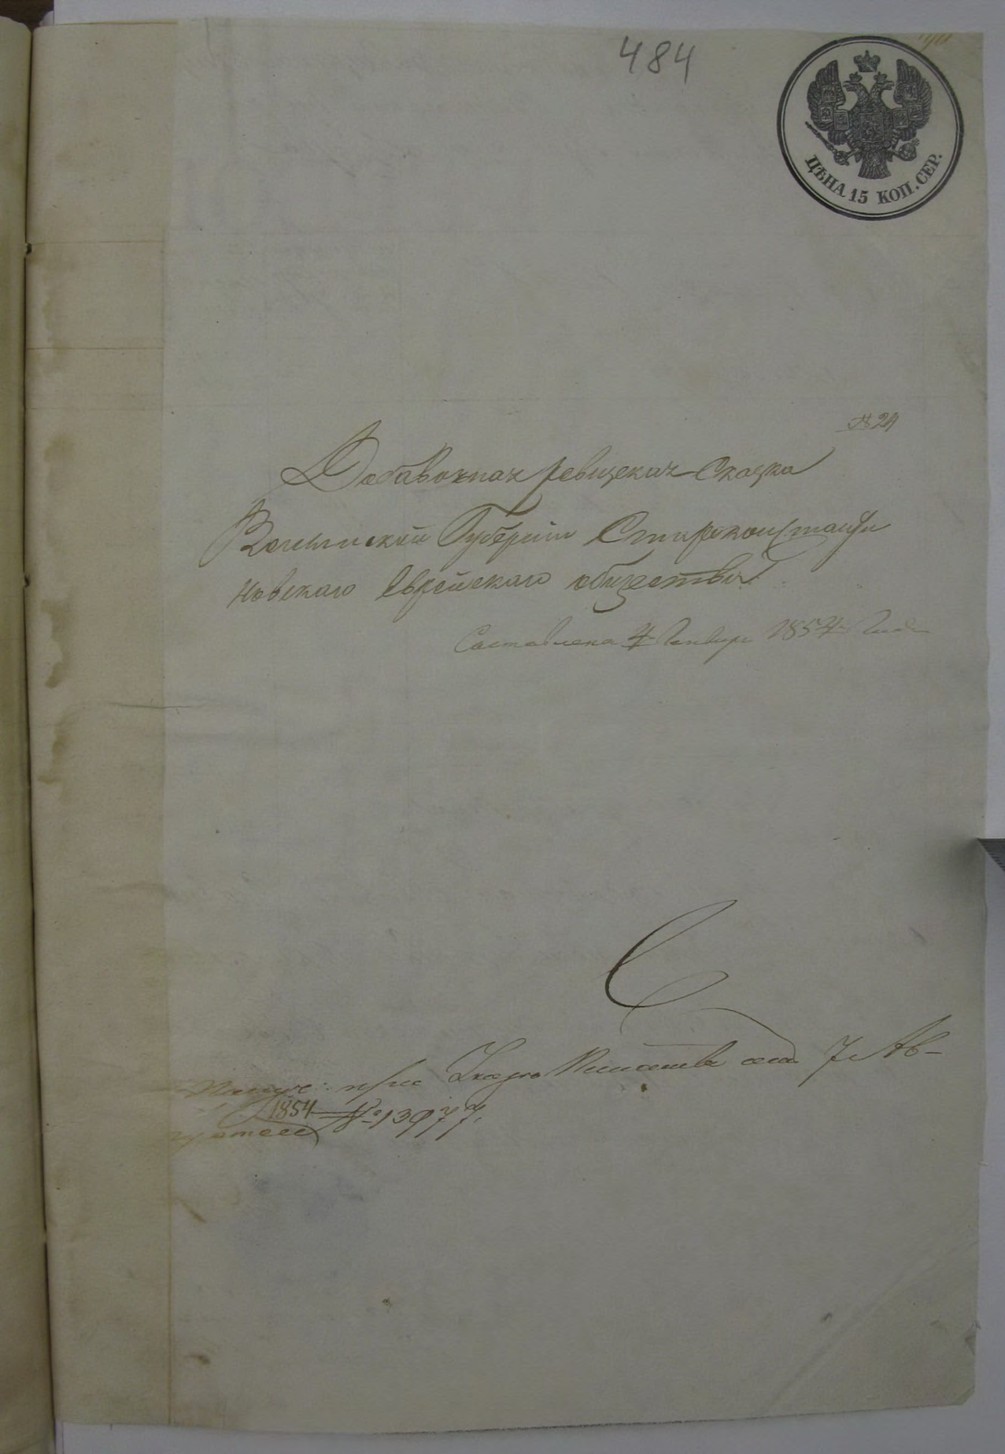 484
ЦѢНА 15 КОП. СЕР.
№ 24
Добавочная ревизская Сказка
Волынской Губернiи Староконстанти
новскаго Еврейскаго общества
Составлена 4 Января 1854 Года
при Указѣ от 7 Ав-
1854
густа № 13977.